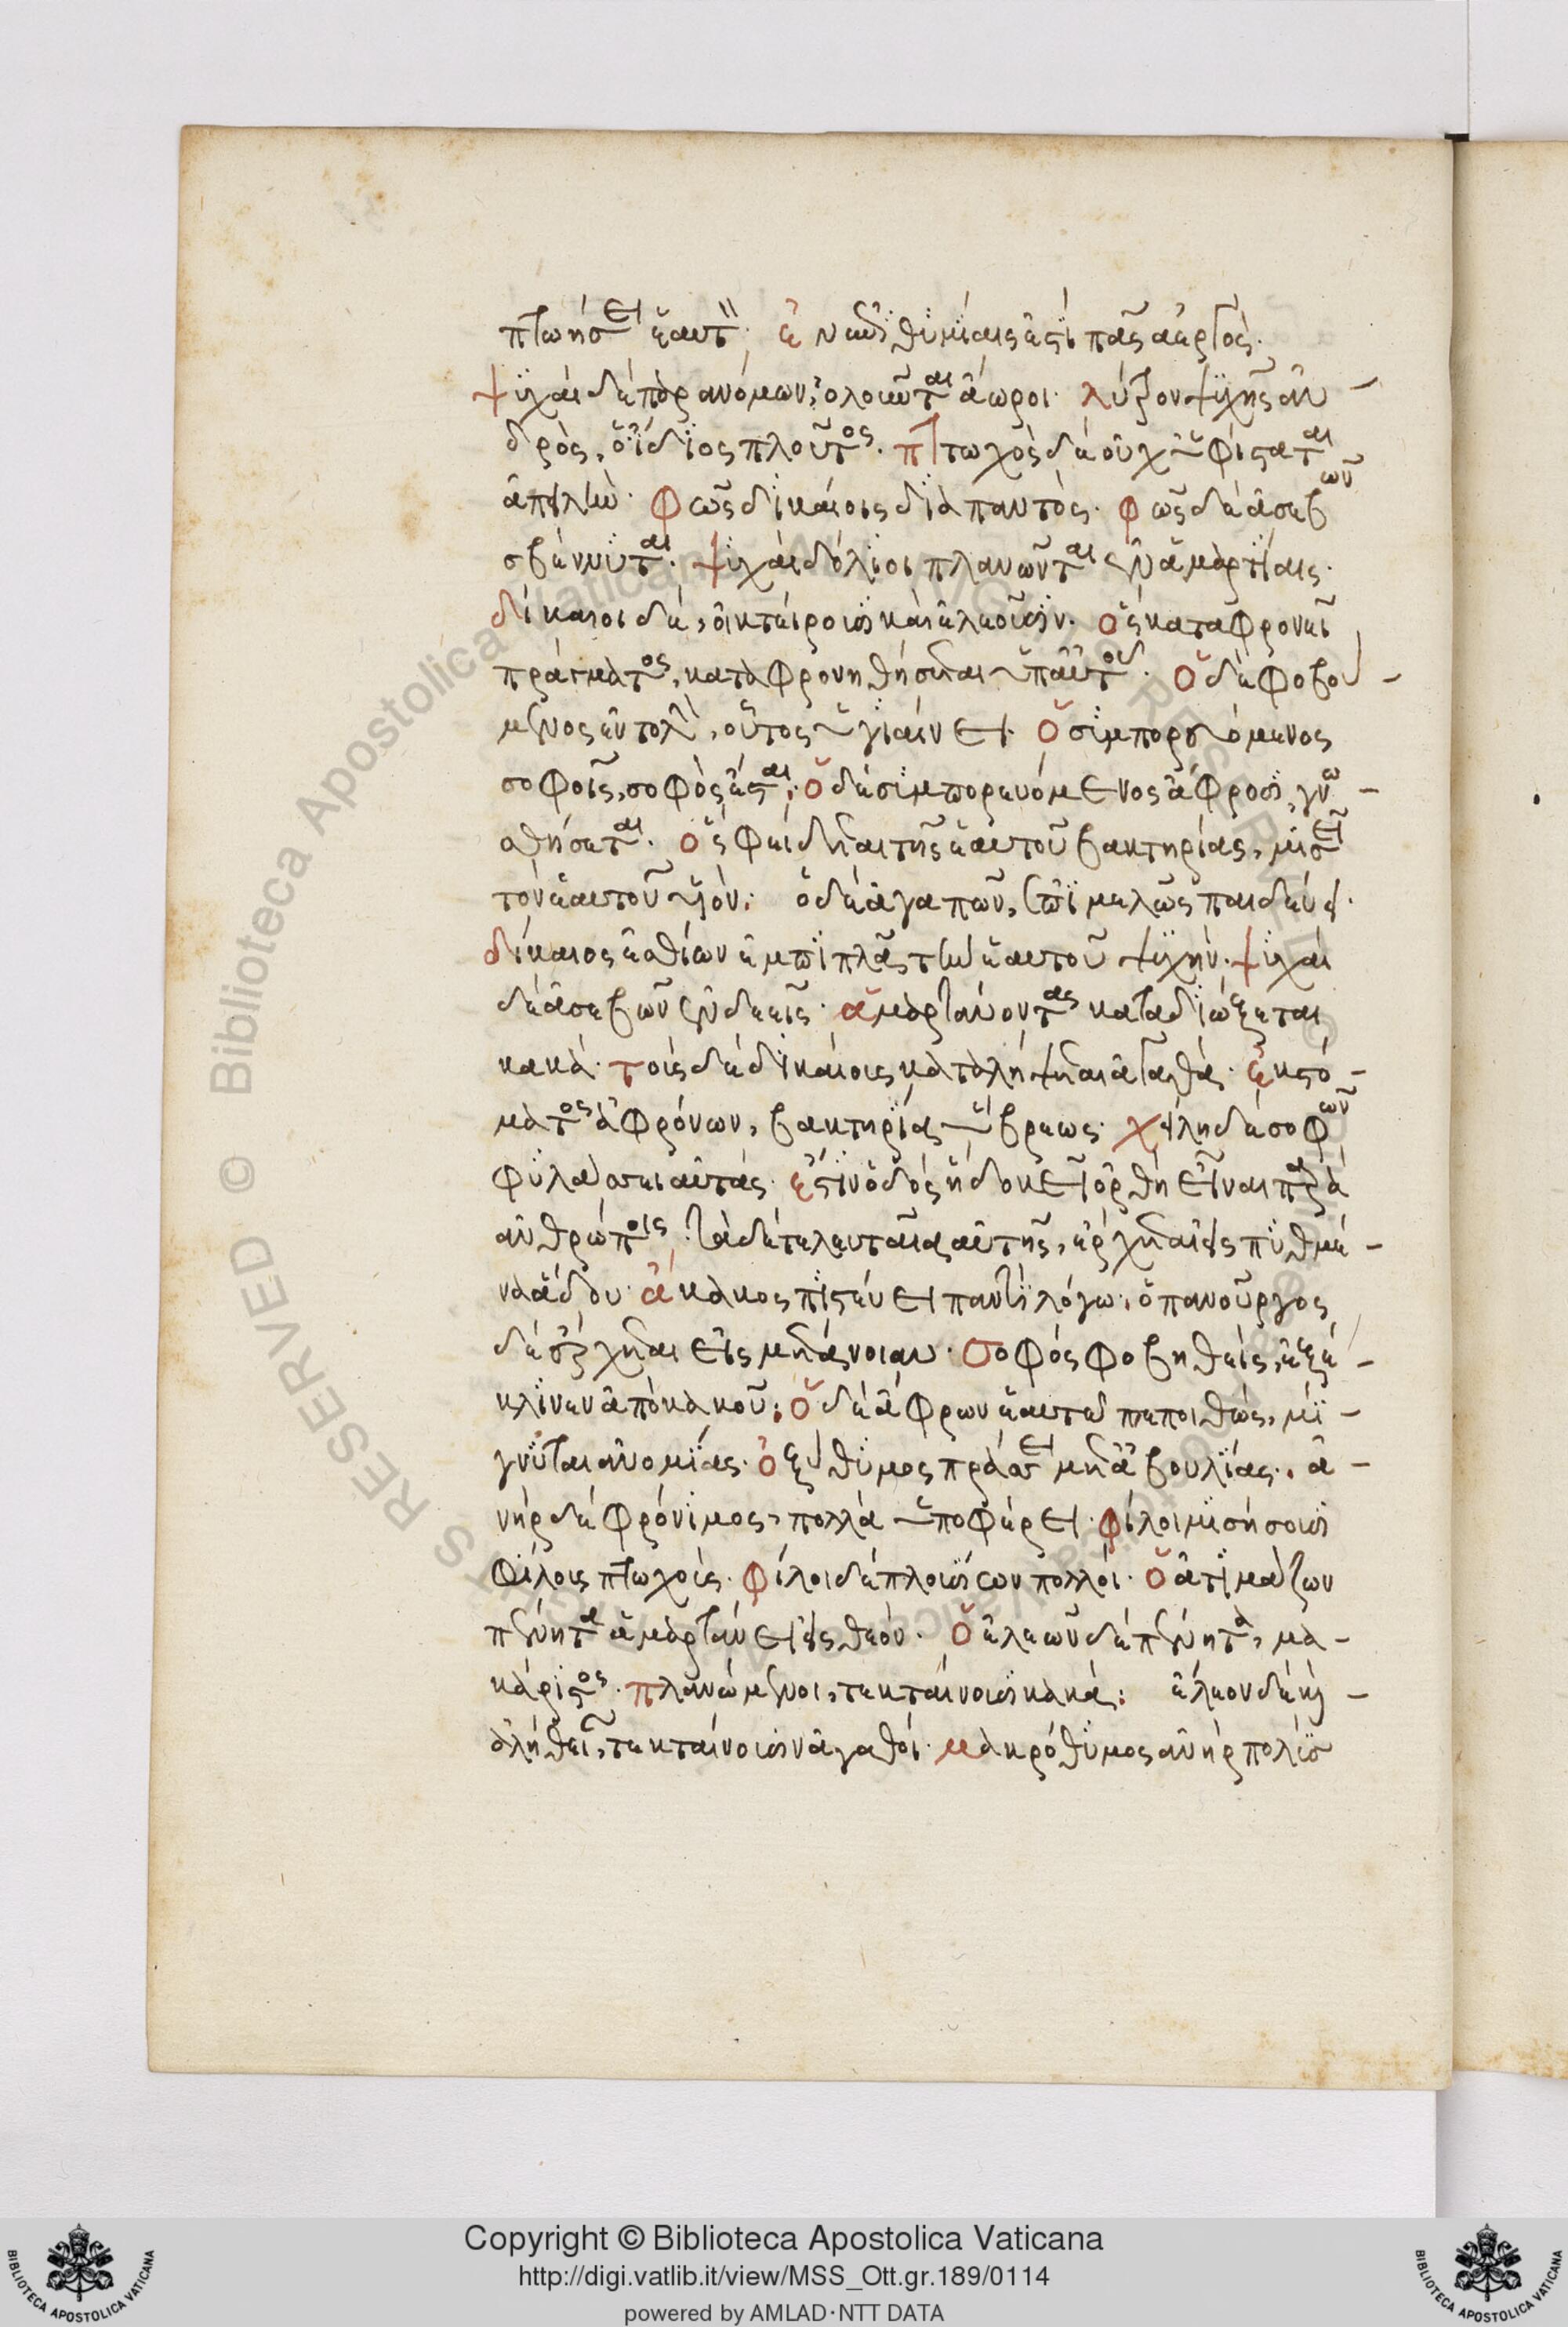 πτωήσει ἑαυτ· ἐν ἐπιθυμίαις ἐστὶ πᾶς ἀεργὸς·
ψυχαὶ δὲ παρανόμων, ὀλοιῶται ἄωροι· λύτρον ψυχῆς ἀν
δρὸς, ὁ ἴδιος πλοῦτος· πτωχὸς δὲ οὐχ ὑφίσταται
ἀπειλὴν· φῶς δικαίοις διαπαντὸς· φῶς δὲ ἀσεβῶν
σβέννυται· ψυχαὶ δόλιοι πλανῶνται ἐν ἁμαρτίαις·
δίκαιοι δὲ, οἰκτείρουσι καὶ ἐλεοῦσιν· ὃς καταφρονεῖ
πράγματος, καταφρονηθήσεται ὑπ' αὐτοῦ· ὁ δὲ φοβού
μενος ἐντολὴν, οὗτος ὑγιαίνει· ὁ συμπορευόμενος
σοφοῖς, σοφὸς ἔσται· ὁ δὲ συμπορευόμενος ἄφροσι, γνω
σθήσεται· ὃς φείδεται τῆς ἑαυτοῦ βακτηρίας, μισεῖ
τὸν ἑαυτοῦ υἱόν· ὁ δὲ ἀγαπῶν, ἐπιμελῶς παιδεύει·
δίκαιος ἐσθίων ἐμπιπλᾶ τὴν ἑαυτοῦ ψυχήν· ψυχαὶ
δὲ ἀσεβῶν ἐνδεεῖς· ἁμαρτάνοντας καταδιώξεται
κακὰ· τοὺς δὲ δικαίους καταλήψεται ἀγαθὰ· ἐκ στό
ματος ἀφρόνων, βακτηρία ὕβρεως· χείλη δὲ σοφῶν
φυλάσσει αὐτάς· ἔστιν ὁδὸς ἣ δοκεῖ ὀρθὴ εἶναι παρὰ
ἀνθρώποις, τὰ δὲ τελευταῖα αὐτῆς, ἔρχεται εἰς πυθμέ
να ἅδου· ἄκακος πιστεύει παντὶ λόγω· ὁ πανοῦργος
δὲ ἔρχεται εἰς μετάνοιαν· σοφὸς φοβηθεὶς, ἐξέ
κλινεν ἀπὸ κακοῦ· ὁ δὲ ἄφρων ἑαυτῶ πεποιθὼς, μί
γνυται ἀνομίας· ὀξύθυμος πράσσει μετὰ ἀβουλίας· ἀ
νὴρ δὲ φρόνιμος, πολλὰ ὑποφέρει· φίλοι μισήσουσι
φίλους πτωχούς· φίλοι δὲ πλουσίων πολλοί· ὁ ἀτιμάζων
πένητα ἁμαρτάνει εἰς θεόν· ὁ ἐλεῶν δὲ πένητα, μα
κάριστος· πλανώμενοι, τεκταίνουσι κακά· ἔλεον δὲ καὶ
ἀλήθειαν, τεκταίνουσιν ἀγαθοί· μακρόθυμος ἀνὴρ πολὺς